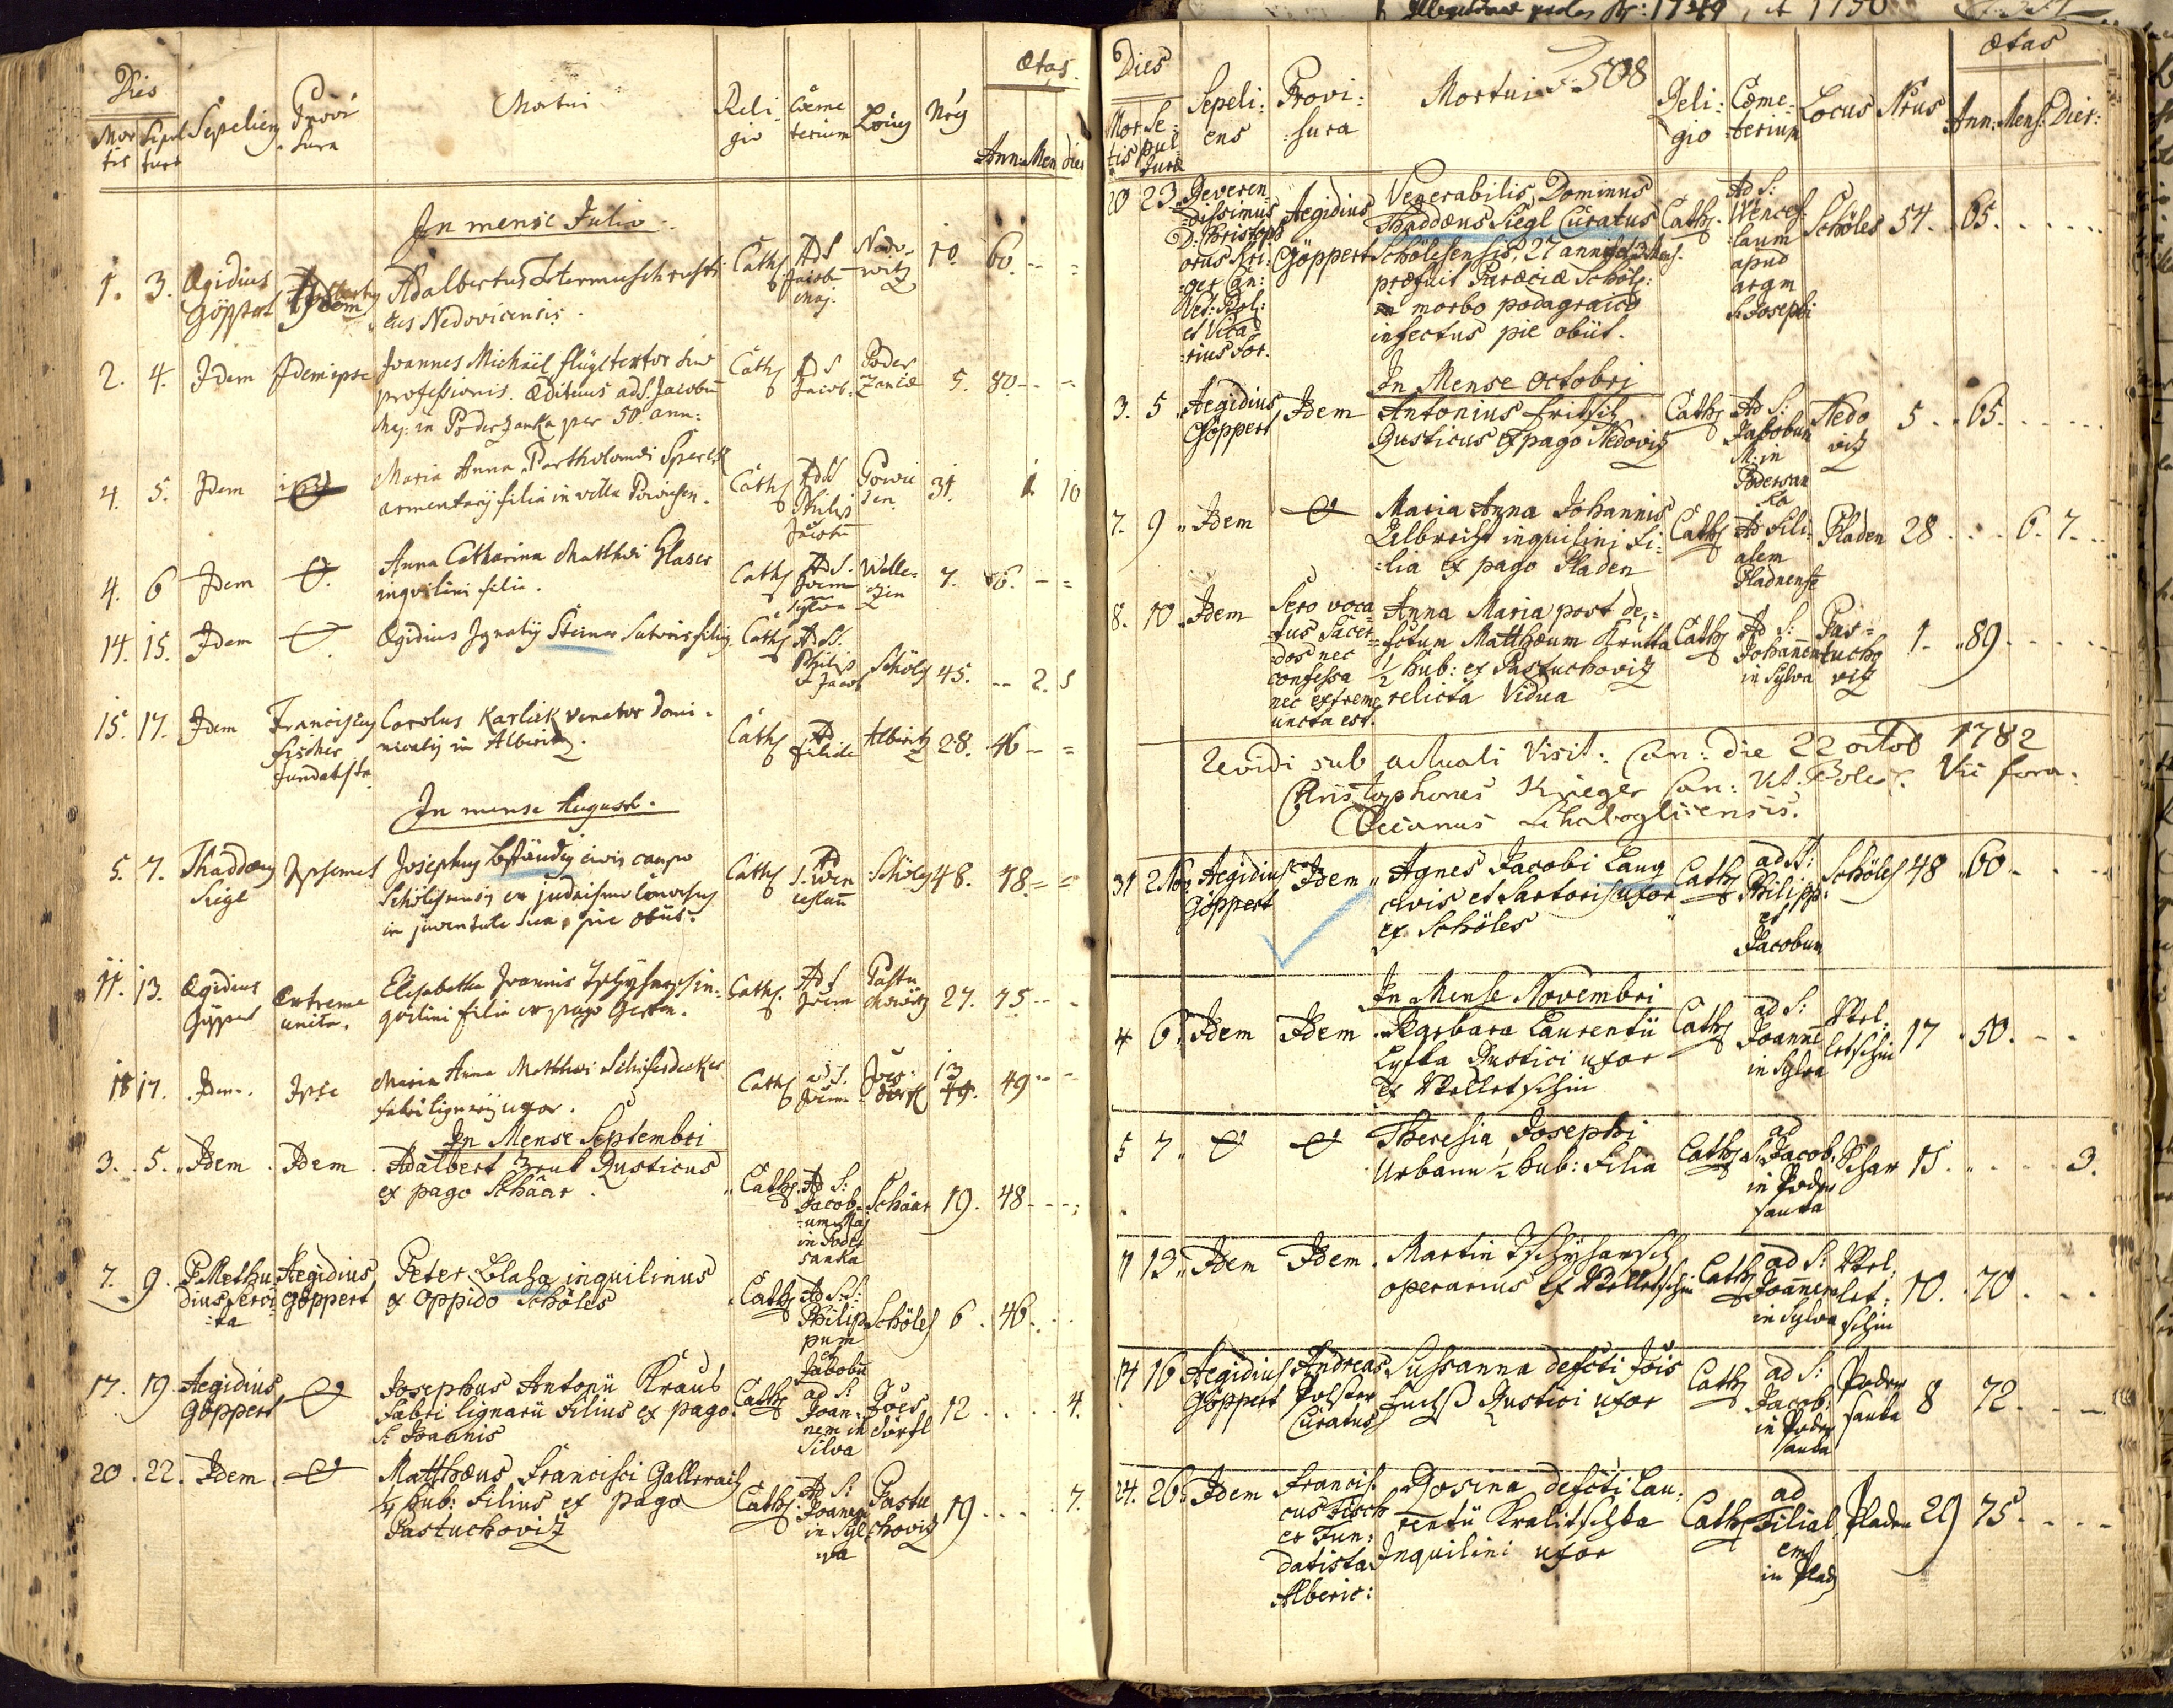 Dies
Mor
tis
Sepul
turæ
Sepeliens
Provi
sura
Mortui
Reli
gio
Cœme
terium
Locus
Nrus
Ætas
Ann. Men. Dies
In mense Julio
1. 3. Ægidius Göppert
Adalbertus
Nedovicensis.
Cath. Ad S. Jacob. Maj. Nedowitz 10. 60. - -
2. 4. Idem Idem ipse
Joannes Michäel
professionis. Ædituus ad S. Jacobum
Maj: in Podersanka per 50. ann:
Cath. Ad S. Jacob. 5. 80 - -
4. 5. Idem
Maria Anna Bartholomæi
armentarij filia in villa
Cath. Ad SS. Philip. Jacobum 31. 1 10
4. 6 Idem
Anna Catharina Matthæi Glaser
inquilini filia.
Cath. Ad S. Joann. Sylva Welle-
7. 6. - -
14. 15. Idem
Ægidius Ignatij Steiner Sutoris filius
Cath. Ad SS. Philip. et Jacob. Schöles 45. - 2. 5
15. 17. Idem Franciscus Fischer Fundatista
Carolus Karlick Venator Domi-
nicalis in Alberitz.
Cath. Ad filiale Alberitz 28. 46 - -
In mense Augusti.
5. 7. Thaddæus Siegl Ipsemet
Josephus Beständig civis caupo
Schölesensis ex judaismo conversus
in juventute sua, pie obiit.
Cath. Ad S. Wenceslaum Schöles 48. 78 - -
11. 13. Ægidius Göppert Extreme uncta.
Elisabetha Joannis in-
quilini filia ex pago
Cath. Ad S. Joann. Pastuchowitz 27. 75 - -
17. Idem. Ipse
Maria Anna Matthæi Schiferdecker
fabri lignarij uxor.
Cath. ad S. Joann. 13 49 - -
In Mense Septembri
3. 5. Idem Idem
Adalbert Rusticus
ex pago Schäar.
Cath. Ad S: Jacob-
um Maj
in Poder
sanka
Schäar 19. 48 - - -
7. 9. P. Methu
dius
Aegidius
Göppert
Peter Blaha inquilinus
ex oppido Schöles
Cath. Ad S.S: Philip
pum
et
Jakobum
Schöles 6. 46. . .
17. 19. Aegidius
Göppert
Josephus Antonii Kraus
Fabri lignarii Filius ex pago
S: Joannis
Cath. ad S: Joan-
nem in
Silva
Joes
dörfl
12 . . . 4.
20. 22. Idem
Matthæus Francisci
1/4 Hub: Filius ex pago
Pastuchovitz
Cath. Ad S: Joannem
in Syl
va
Pastu
chovitz
19. . . . 7.
Illegitimos 1749, et 1750
Dies
Mor
tis
Se:
pul
turæ
Sepeli:
ens
Provi:
sura
Mortui F: 508
Reli:
gio
Cœme:
terium
Locus Nrus
Ætas
Ann: Mens: Dier:
20 23. Reveren-
dissimus
D: Christoph
orus Kri:
ger Can:
Vet: Bol:
et Vica-
rius For.
Aegidius
Göppert
Venerabilis Dominus
Thaddæus Siegl Curatus
Schölesensis, 27 annis et 3 Mens.
præfuit Paræciæ Schöl:
morbo podagraico
infectus pie obiit.
Cath. Ad S: Wences-
laum
apud
aram
S. Josephi
Schöles 54. 65. . . . .
In Mense Octobri
3. 5 Aegidius
Göppert
Idem
Antonius Fritsch
Rusticus ex pago Nedovitz
Cath. Ad S: Jakobum
M: in
Podersan
ka
Nedo
vitz
5 . . 65. . . . .
7. 9 Idem
Maria Anna Johannis
inquilini Fi:
lia ex pago Pladen
Cath. Ad Fili-
alem
Pladnensem
Pladen 28 . . . 6. 7. . .
8. 10. Idem
Sero voca-
tus Sacer-
dos nec
confessa
nec extreme
uncta est.
Anna Maria post de-
fctum Matthæum Krutta
1/2 Hub: ex Pastuchovitz
relicta Vidua
Cath. Ad S: Johannem
in Sylva
Pas-
tucho
vitz
1. 89. . . .
Revidi sub actuali Visit: Can: die 22 octob 1782
Christophorus Krieger Can: Vet: Bolesl. Vic fora:
Decanus
31 2 Nov. Aegidius
Göppert
Idem
Agnes Jacobi Lang
civis et Sartoris uxor
ex Schöles
Cath. ad SS: Philipp:
et
Jacobum
Schöles 48 60 . . .
In Mense Novembri
4 6. Idem Idem
Barbara Laurentii
Rustici uxor
ex Welletschin
Cath. ad S: Joannem
in Sylva
Wel:
letschin
17 . 50. . .
5 7
Theresia Josephi
Urbann 1/2 Hub: Filia
Cath. ad S: Jacob:
in Poder
sanka
Schar 15. . . . . 3.
11 13. Idem Idem.
Martin
operarius ex Welletschin
Cath. ad S: Joannem
in Sylva
Wel:
let:
schin
10. . 70. . . .
14 16 Aegidius
Göppert
Andreas
Polster
Curatus
Sussanna defcti Jois
Fuchs Rustici uxor
Cath. ad S: Jacob:
in Poder
sanka
Poder
sanka
8 72. . . -
24. 26. Idem
Francis-
cus Fisch
er Fun-
datista
Alberic:
Rosina defcti Lau-
rentii Kralitschka
Inquilini uxor
Cath. ad Filial
em
in Plad
Pladen 29 75. . . . .